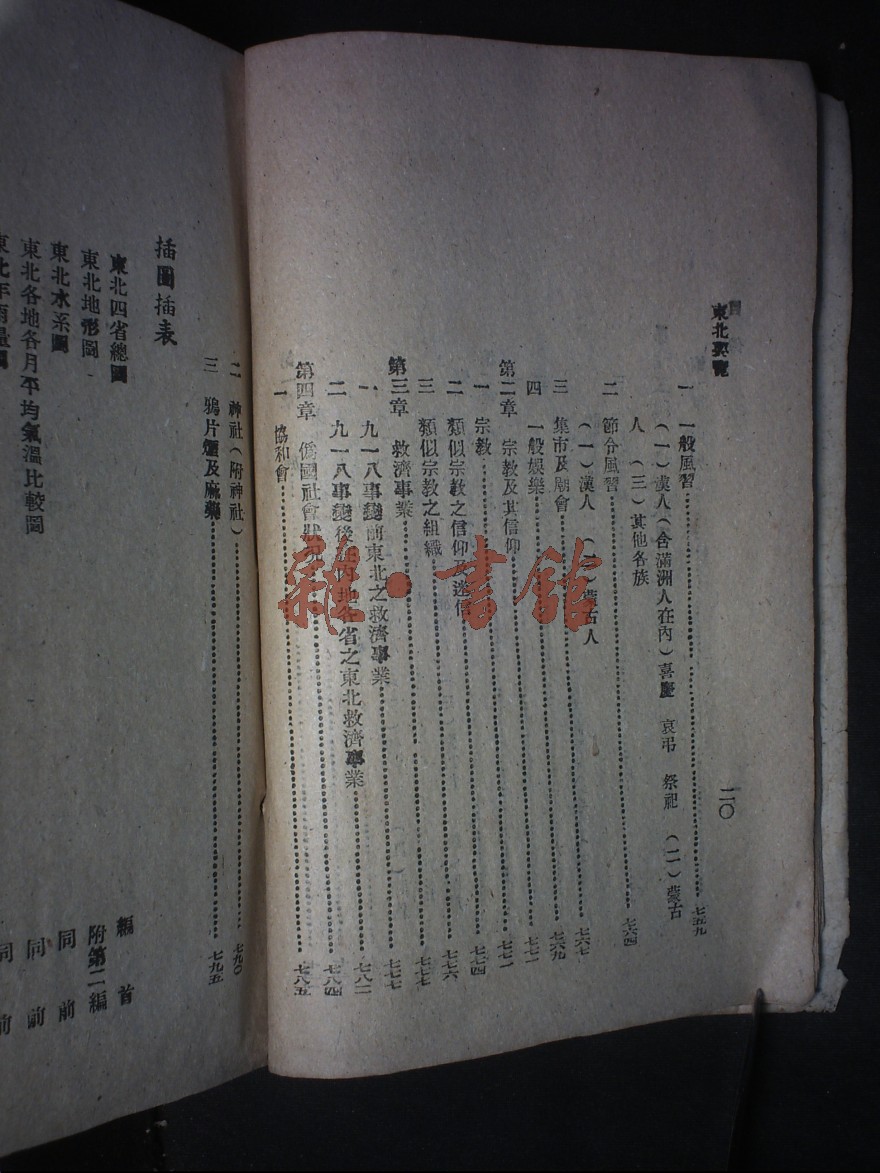 東北要覽
二〇
一 一般風習……七五九
(一)漢人(含滿洲人在內)喜慶 哀弔 祭祀 (二)蒙古
人 (三)其他各族
二 節令風習……七六四
(一)漢人 (二)蒙古人……七六七
三 集市及廟會……七六九
四 一般娛樂……七七一
第二章 宗教及其信仰……七七一
一 宗教……七七四
二 類似宗教之信仰及迷信……七七六
三 類似宗教之組織……七七七
第三章 救濟事業……七七七
一 九一八事變前東北之救濟事業……七八二
二 九一八事變後在內地各省之東北救濟事業……七八四
第四章 僞國社會狀況
一 協和會……七八五
二 神社(附神社)……七九〇
三 鴉片煙及麻藥……七九五
插圖插表
東北四省總圖 編首
東北地形圖 附第二編
東北水系圖 同前
東北各地各月平均氣溫比較圖 同前
東北年雨量圖 同前
雜·書館